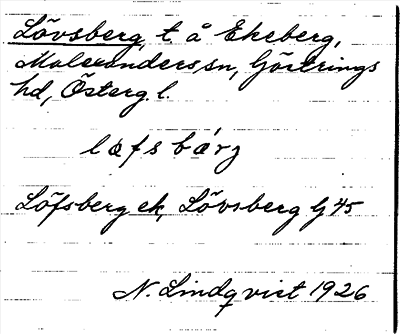 Lövsberg, t. å Ekeberg,
Malexanders sn, Göstrings
hd, Österg. l.
løfsbærj
Löfsberg ek, Lövsberg G 45
N. Lindqvist 1926